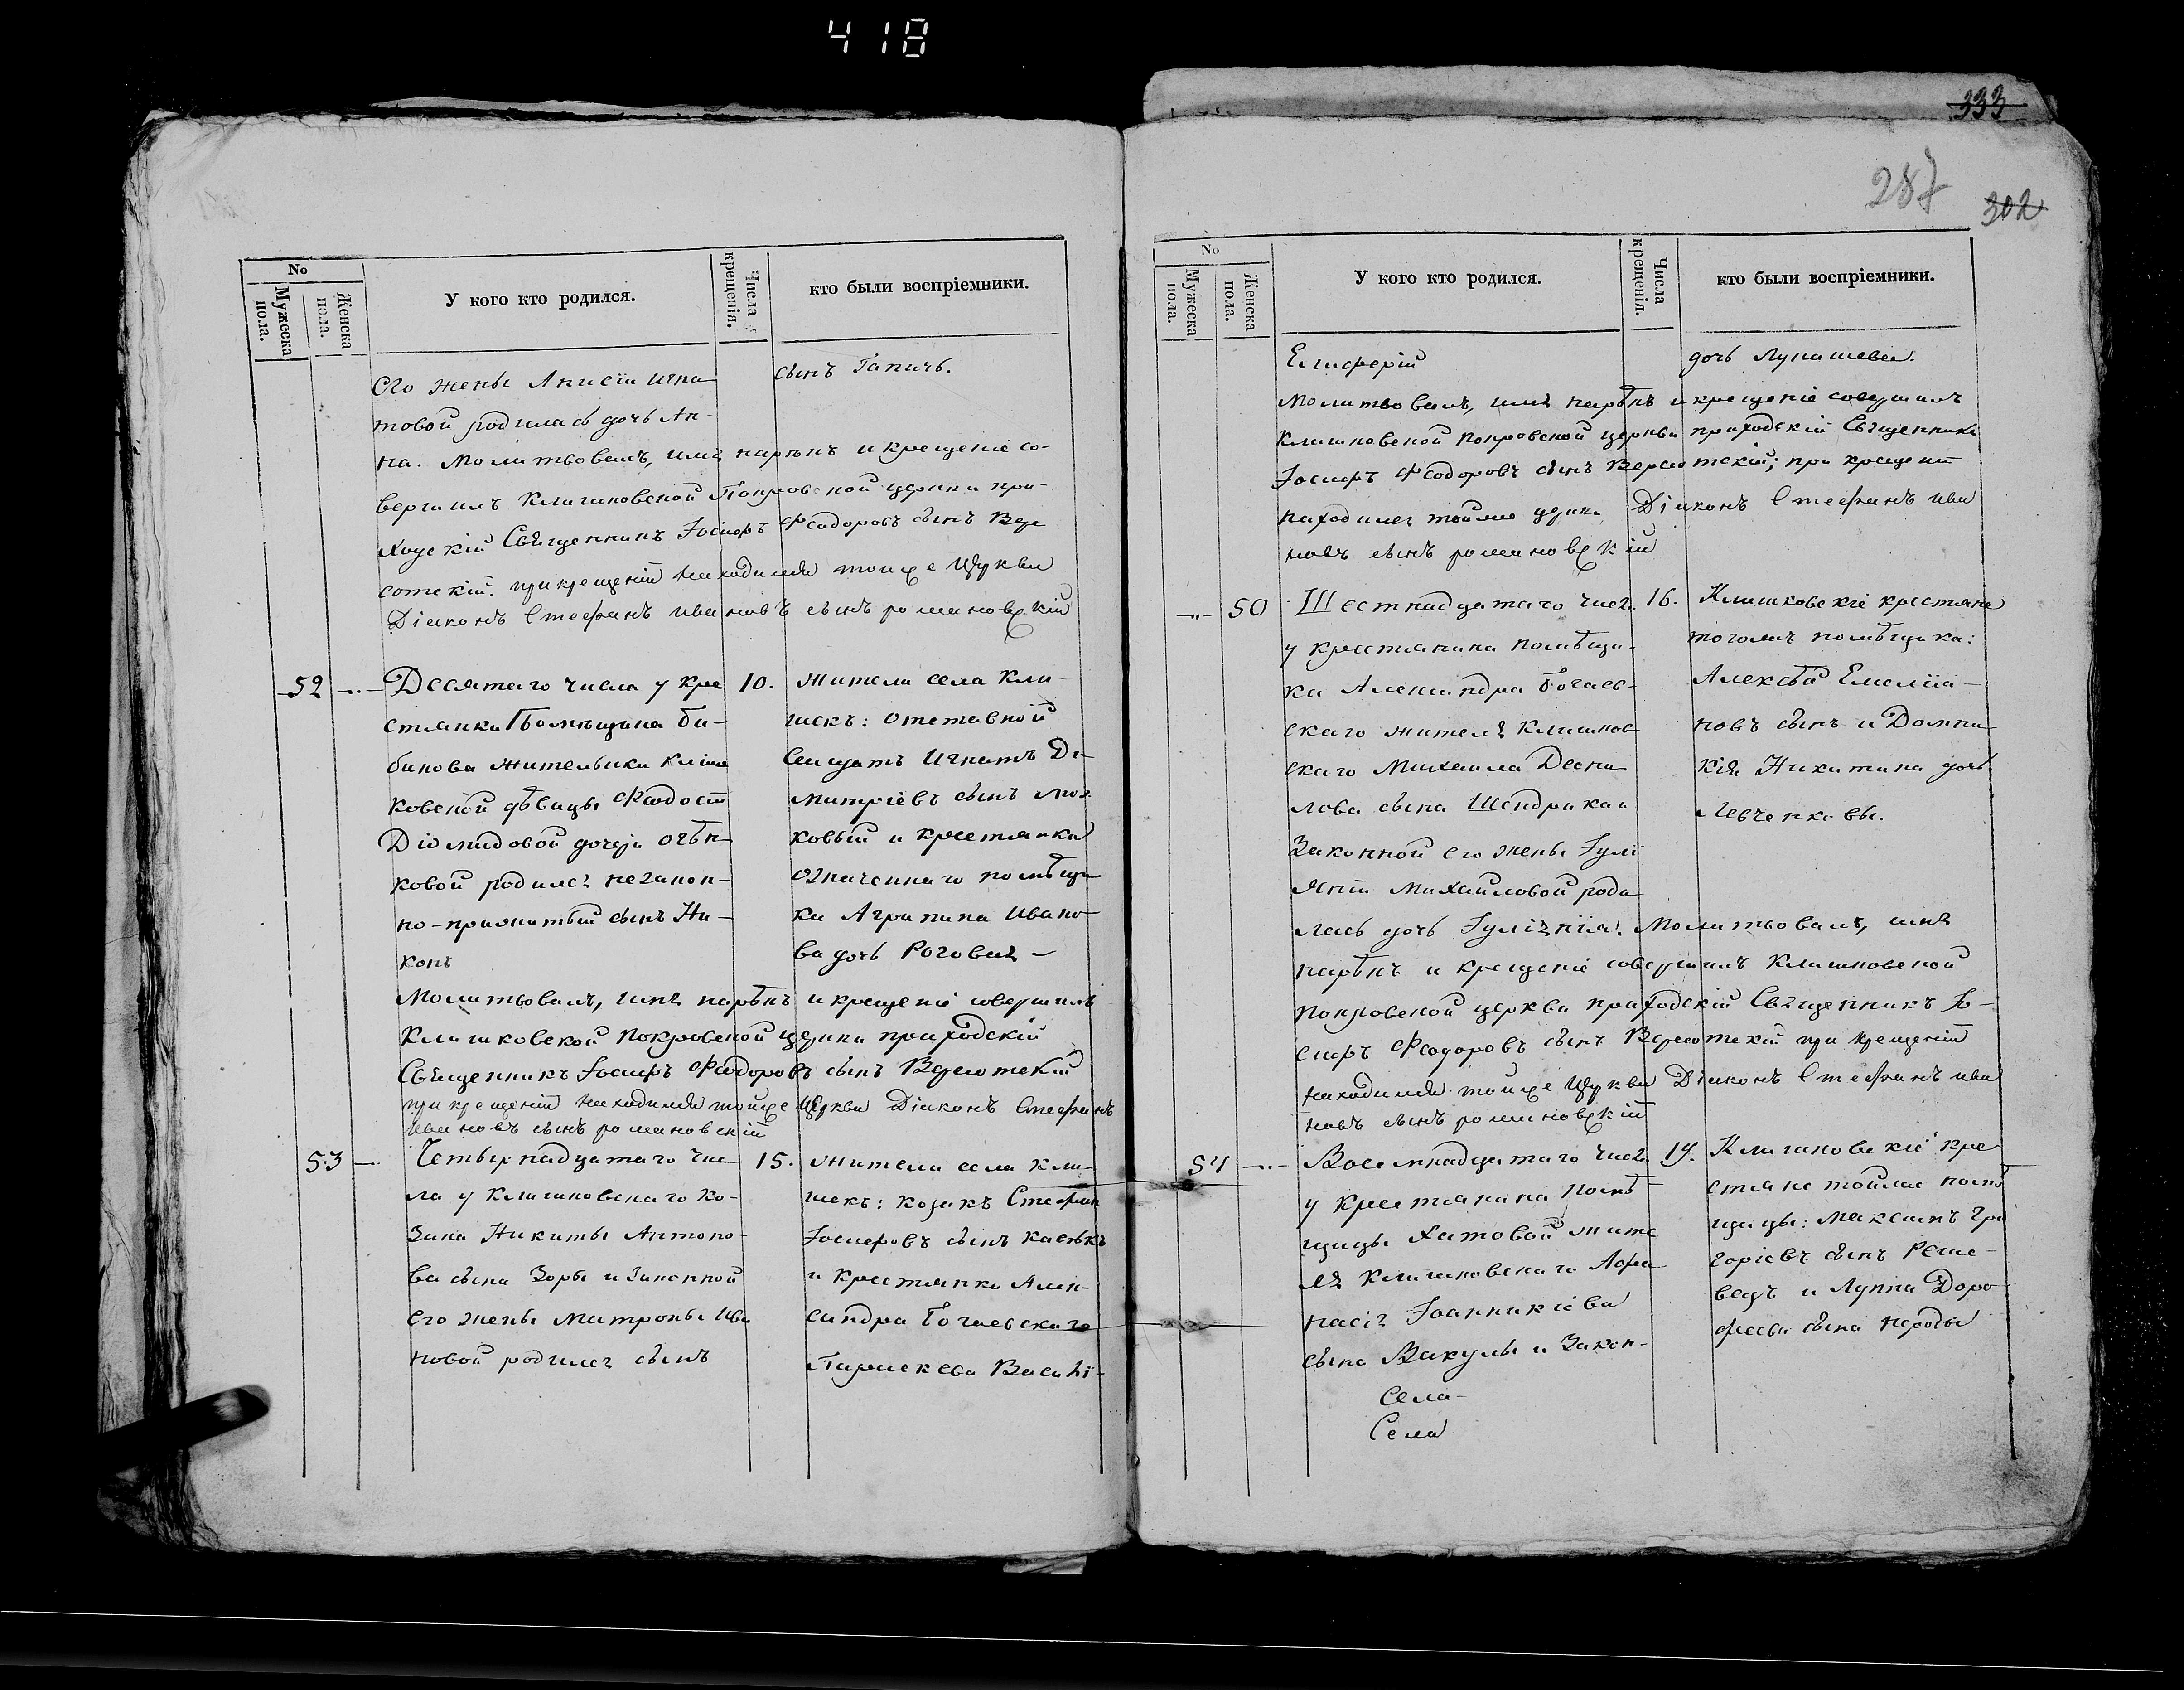 418
333
287
302
No
Мужеска пола.
Женска пола.
У кого кто родился.
Числа крещенія.
кто были воспріемники.
его жены Анисіи Игна
товой родилась дочь Ан-
на. Молитвовалъ, имя нарѣкъ и крещеніе со-
вершилъ Клишковской Покровской церкви при-
ходскій Священникъ Іосифъ Феодоровъ сынъ Вере
сотскій. при крещеніи находился тойже Церкви
Діаконъ Стефанъ Ивановъ сынъ романовскій
сынъ Гапичъ.
52
Десятаго числа у кре
стянки Помѣщика Би-
бикова жительки Клиш
ковской дѣвицы Феодосіи
Діомидовой дочери
ковой родился незакон-
но-прижитый сынъ Ни-
конъ
10.
жители села Кли-
шекъ: отставной
Солдатъ Игнатъ Ди-
митріевъ сынъ
ковый и крестянка
означеннаго помѣщи
ка Агрипина Ивано-
ва дочь Роговая
Молитвовалъ, имя нарѣкъ и крещеніе совершилъ
Клишковской Покровской церкви приходскій
Священникъ Іосифъ Феодоровъ сынъ Вересотскій
при крещеніи находился тойже Церкви Діаконъ Стефанъ
Ивановъ сынъ романовскій
53
Четырнадцатаго чис
ла у Клишковскаго ко-
зака Никиты Антоно-
ва сына Зоры и Законной
его жены Матроны Ива
новой родился сынъ
15.
жители села Кли-
шекъ: козакъ Стефан
Іосифовъ сынъ
и крестянка Алек-
сандра Богаевскаго
Параскева Василі-
No
Мужеска пола.
Женска пола.
У кого кто родился.
Числа крещенія.
кто были воспріемники.
Елисферій
дочь Лукашева.
Молитвовалъ, имя нарѣкъ и крещеніе совершилъ
Клишковской покровской церкви приходскій Священникъ
Іосифъ Феодоровъ сынъ Вересотскій; при крещеніи
находился тойже церкви Діаконъ Стефанъ Ива
новъ сынъ романовскій
50
Шестнадцатаго числа
у крестянина помѣщи-
ка Александра Богаев-
скаго жителя Клишков
скаго Михаила
лова сына Шендрика и
Законной его жены Іулі
яніи Михайловой роди
лась дочь Іуліянія. Молитвовалъ, имя
16.
Клишковскіе крестяне
тогожъ помѣщика:
Алексѣй Емелія-
новъ сынъ и Домни
кія Никитина дочь
Левченкова.
нарѣкъ и крещеніе совершилъ Клишковской
покровской церкви приходскій Священникъ Іо-
сифъ Феодоровъ сынъ Вересотскій при крещеніи
находился тойже Церкви Діаконъ Стефанъ Ива
новъ сынъ романовскій
54
Восемнадцатаго числа
у крестянина помѣ
щицы Хатовой жите
ля Клишковскаго Афа
насія Іоанникіева
сына Вакулы и Закон-
19.
Клишковскіе кре
стяне тойже помѣ
щицы: Максимъ Гри
горіевъ сынъ Реше-
вецъ и Лукія Доро
феева сына
Села-
Села